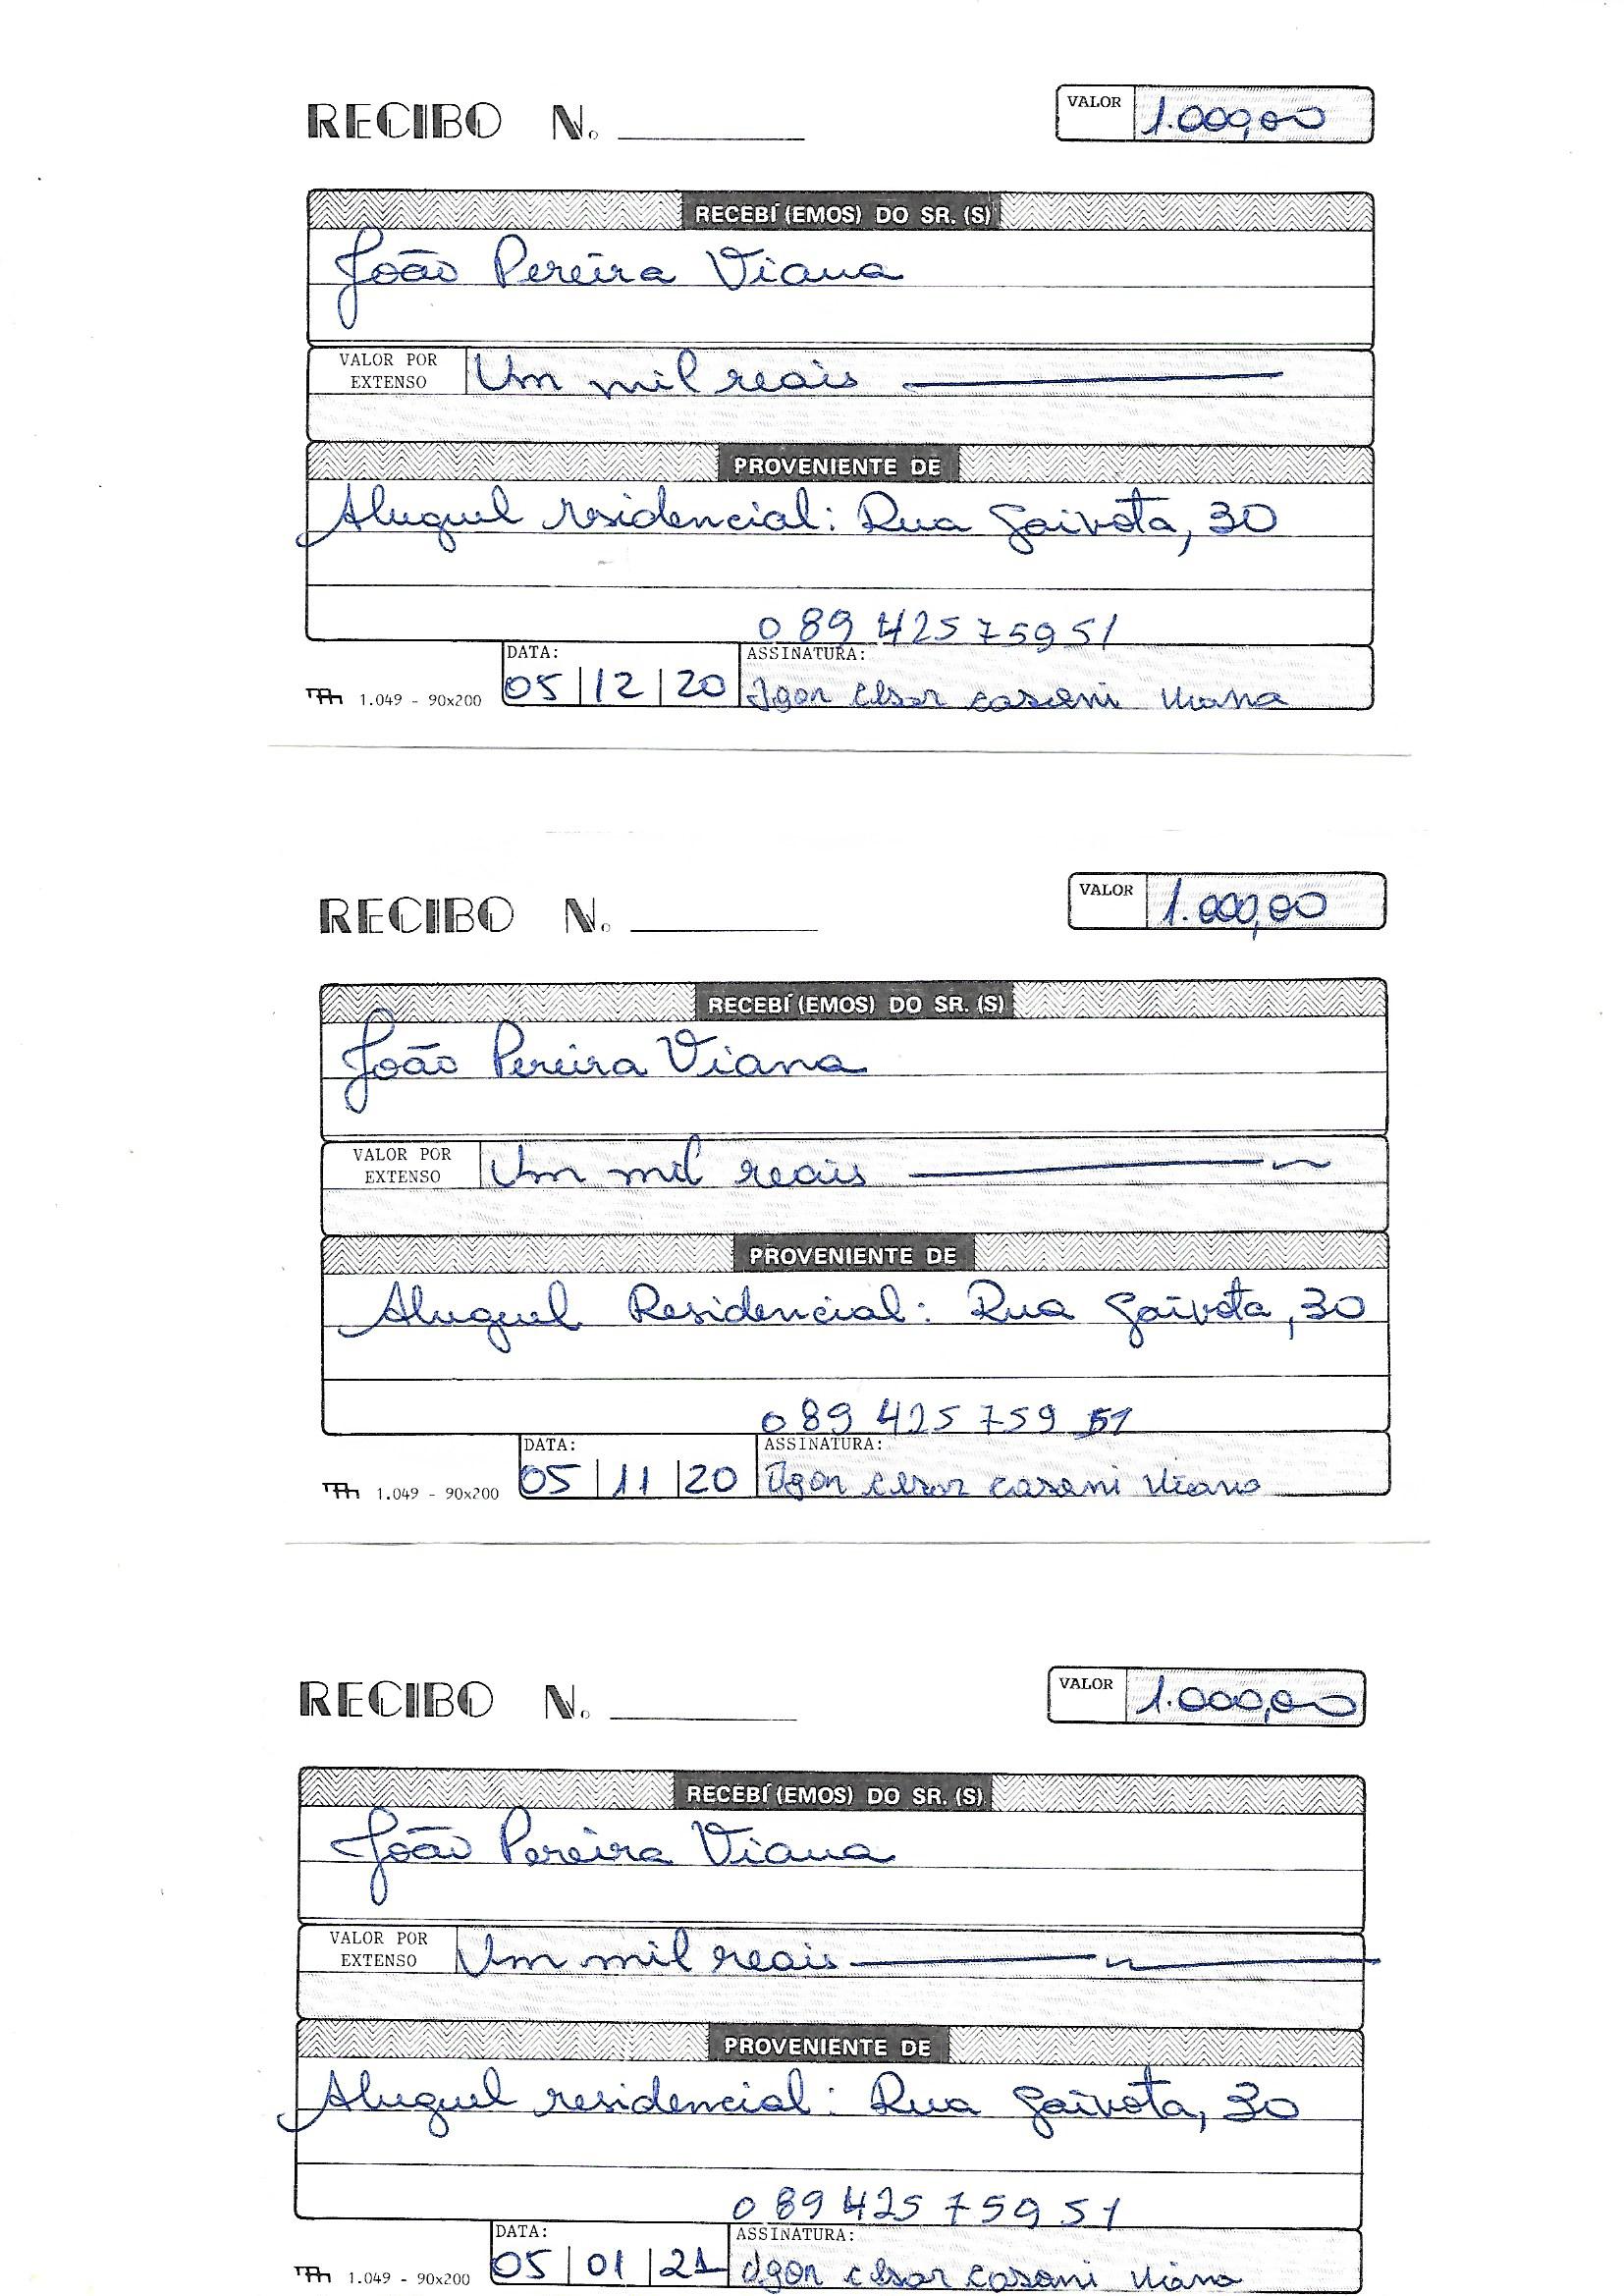 RECIBO N. VALOR 1.000,00
RECEBÍ (EMOS) DO SR. (S)
João Pereira Viana
VALOR POR EXTENSO Um mil reais
PROVENIENTE DE
Aluguel residencial: Rua Gaivota, 30
089 425 759 51
DATA: ASSINATURA:
1.049 - 90x200 05/12/20 Igon Cesar Casani Viana
RECIBO N. VALOR 1.000,00
RECEBÍ (EMOS) DO SR. (S)
João Pereira Viana
VALOR POR EXTENSO Um mil reais
PROVENIENTE DE
Aluguel Residencial: Rua Gaivota, 30
089 425 759 51
DATA: ASSINATURA:
1.049 - 90x200 05/11/20 Igon Cesar Casani Viana
RECIBO N. VALOR 1.000,00
RECEBÍ (EMOS) DO SR. (S)
João Pereira Viana
VALOR POR EXTENSO Um mil reais
PROVENIENTE DE
Aluguel residencial: Rua Gaivota, 30
089 425 759 51
DATA: ASSINATURA:
1.049 - 90x200 05/01/21 Igon Cesar Casani Viana